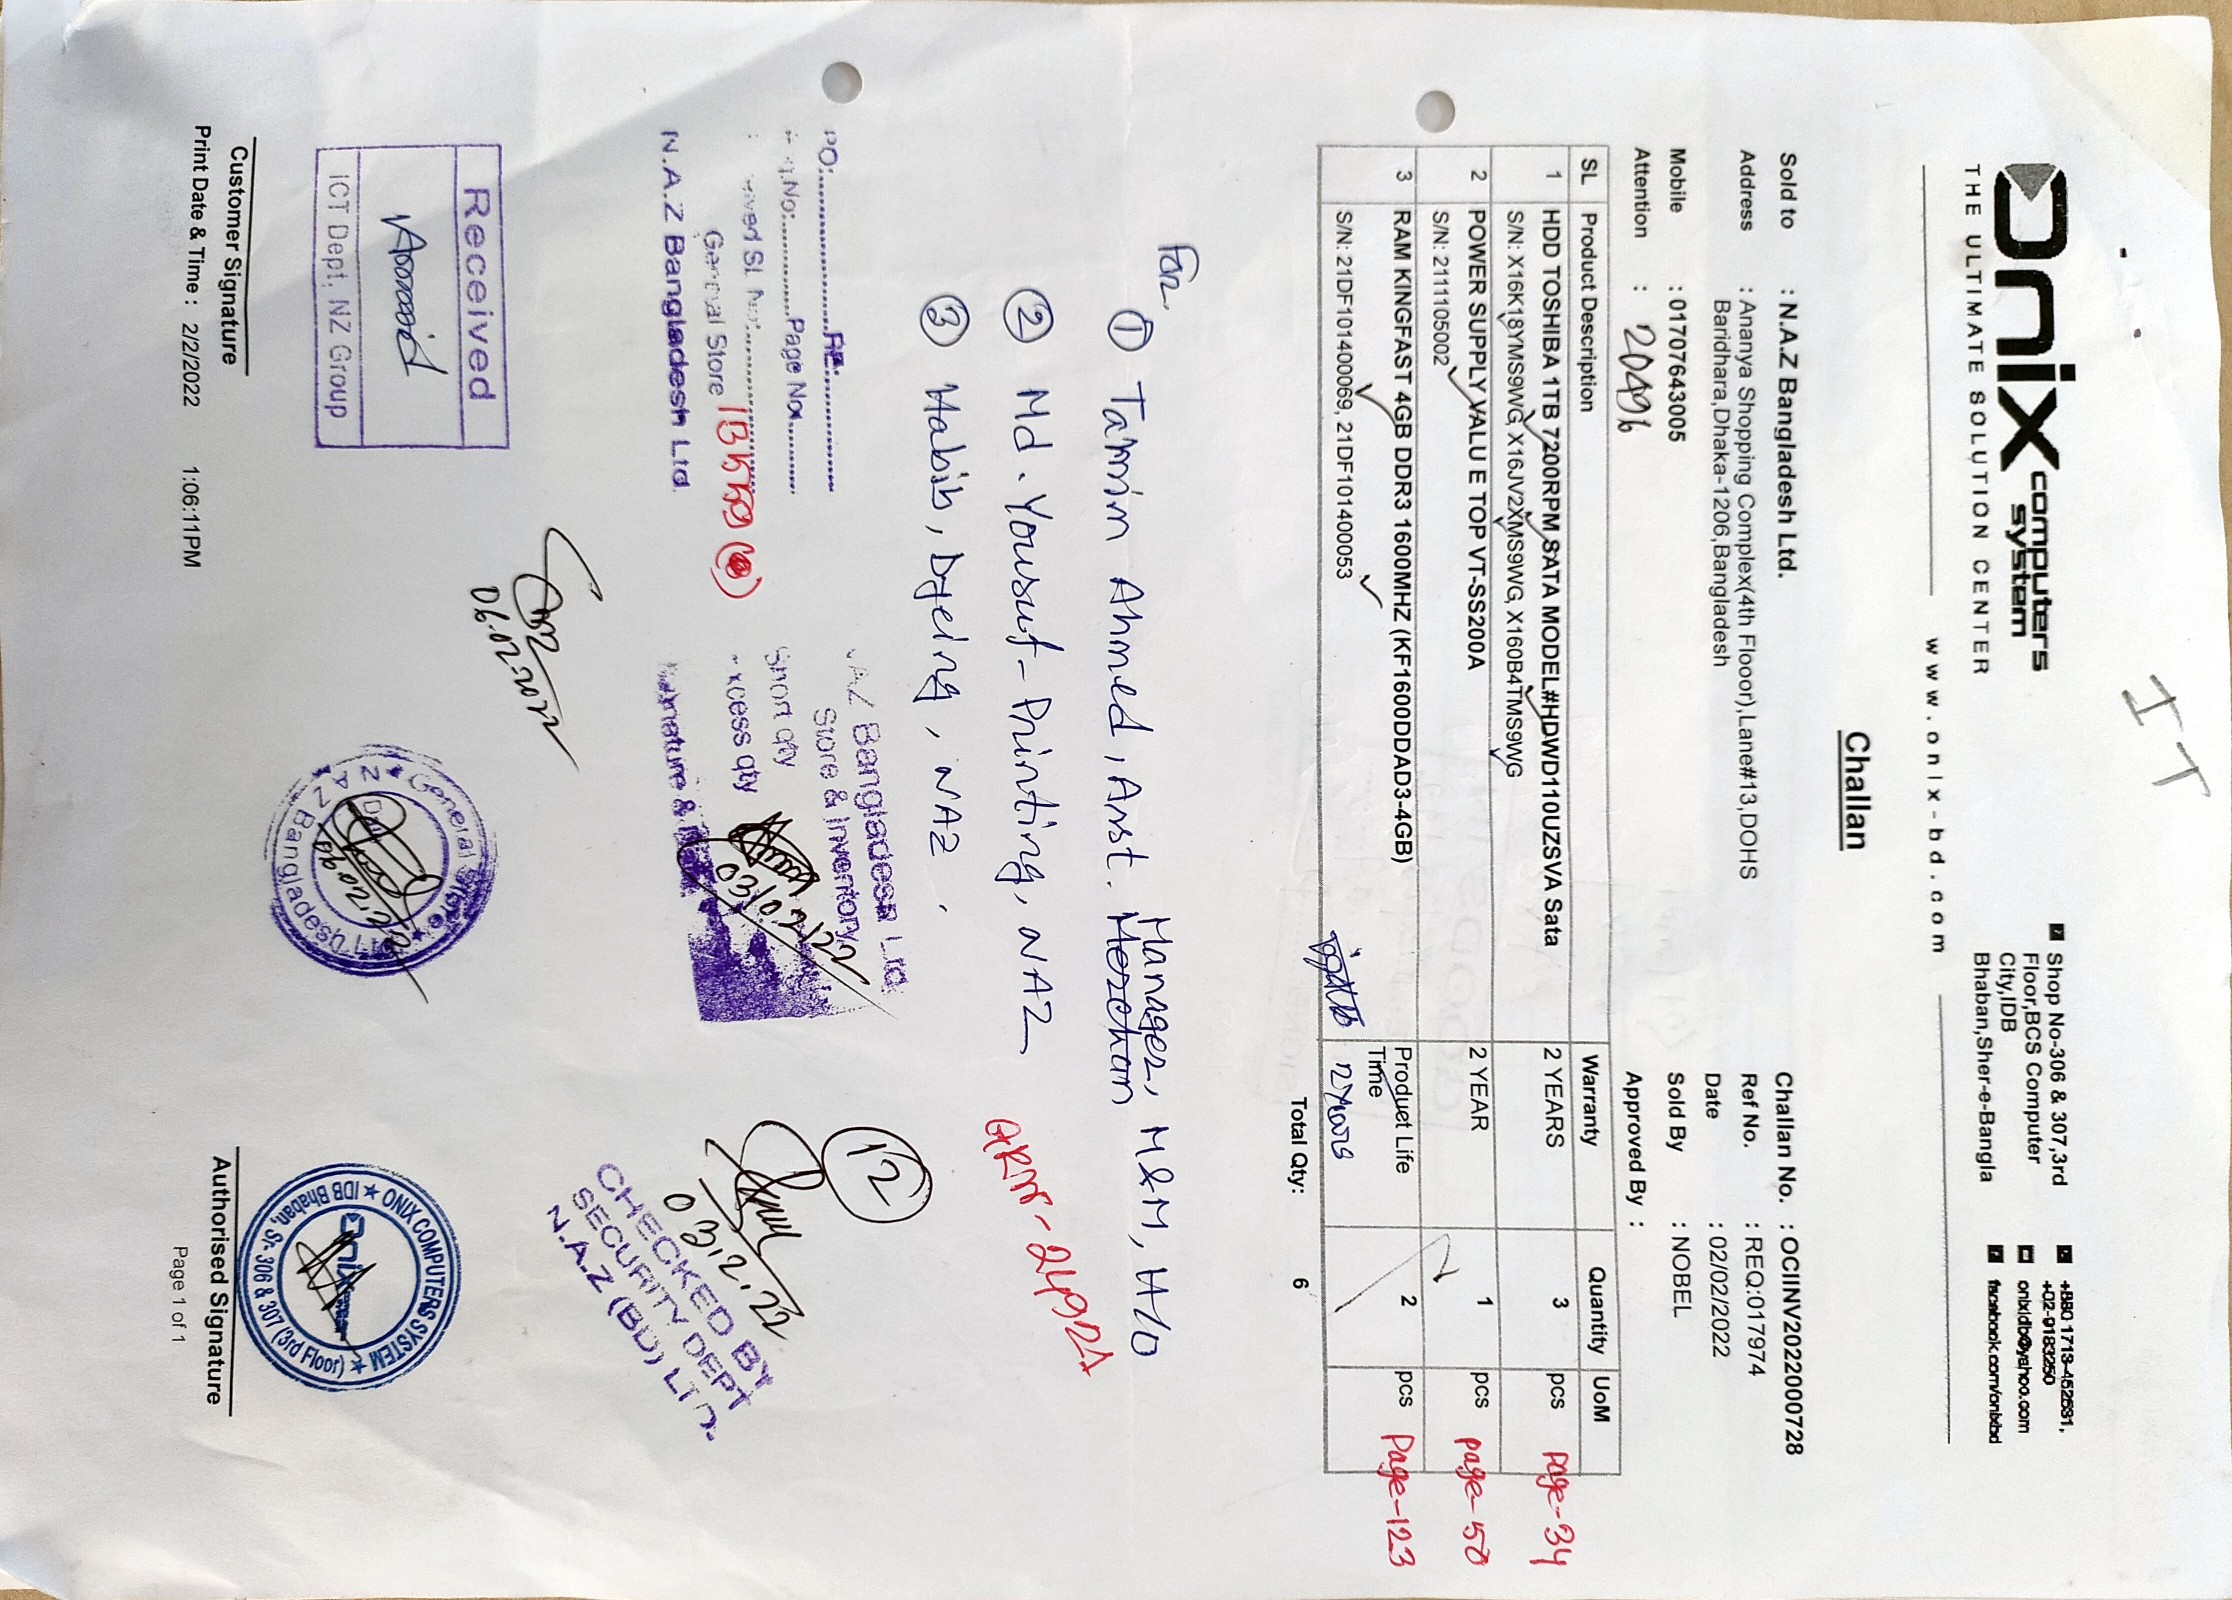 IT
Onix computers system
THE ULTIMATE SOLUTION CENTER
Shop No-306 & 307,3rd
Floor,BCS Computer
City,IDB
Bhaban,Sher-e-Bangla
+880 1713-452531,
+02-9183250
onixidb@yahoo.com
facebook.com/onixbd
www.onix-bd.com
Challan
Sold to : N.A.Z Bangladesh Ltd.
Address : Ananya Shopping Complex(4th Flooor),Lane#13,DOHS
Baridhara,Dhaka-1206,Bangladesh
Mobile : 01707643005
Attention : 20496
Challan No. : OCIINV2022000728
Ref No. : REQ:017974
Date : 02/02/2022
Sold By : NOBEL
Approved By :
SL Product Description Warranty Quantity UoM
1 HDD TOSHIBA 1TB 7200RPM SATA MODEL#HDWD110UZSVA Sata 2 YEARS 3 pcs Page-34
S/N: X16K18YMS9WG, X16JV2XMS9WG, X160B4TMS9WG
2 POWER SUPPLY VALU E TOP VT-SS200A 2 YEAR 1 pcs page-50
S/N: 2111105002
3 RAM KINGFAST 4GB DDR3 1600MHZ (KF1600DDAD3-4GB) Product Life 2 pcs Page-123
Time
S/N: 21DF101400069, 21DF101400053 2 Years
Total Qty: 6
For
① Tamim Ahmed, Asst. Merchan Manager, M&M, H/O
② Md. Yousuf-Printing, NAZ
GRN-24921
③ Habib, Dyeing, NAZ.
PO:..............RE:..............
No:..............Page No:..............
SL No:..............
General Store 13559
N.A.Z Bangladesh Ltd.
AZ Bangladesh Ltd.
Store & Inventory
Short qty
Excess qty
Signature &
03/02/22
12
03.2.22
CHECKED BY
SECURITY DEPT
N.A.Z (BD) LTD.
06.02.2022
Received
ICT Dept, NZ Group
General Store
N A Z Bangladesh Ltd
06.02.22
ONIX COMPUTERS SYSTEM
Onix
IDB Bhaban, Sr- 306 & 307 (3rd Floor)
Customer Signature
Authorised Signature
Print Date & Time : 2/2/2022 1:06:11PM
Page 1 of 1